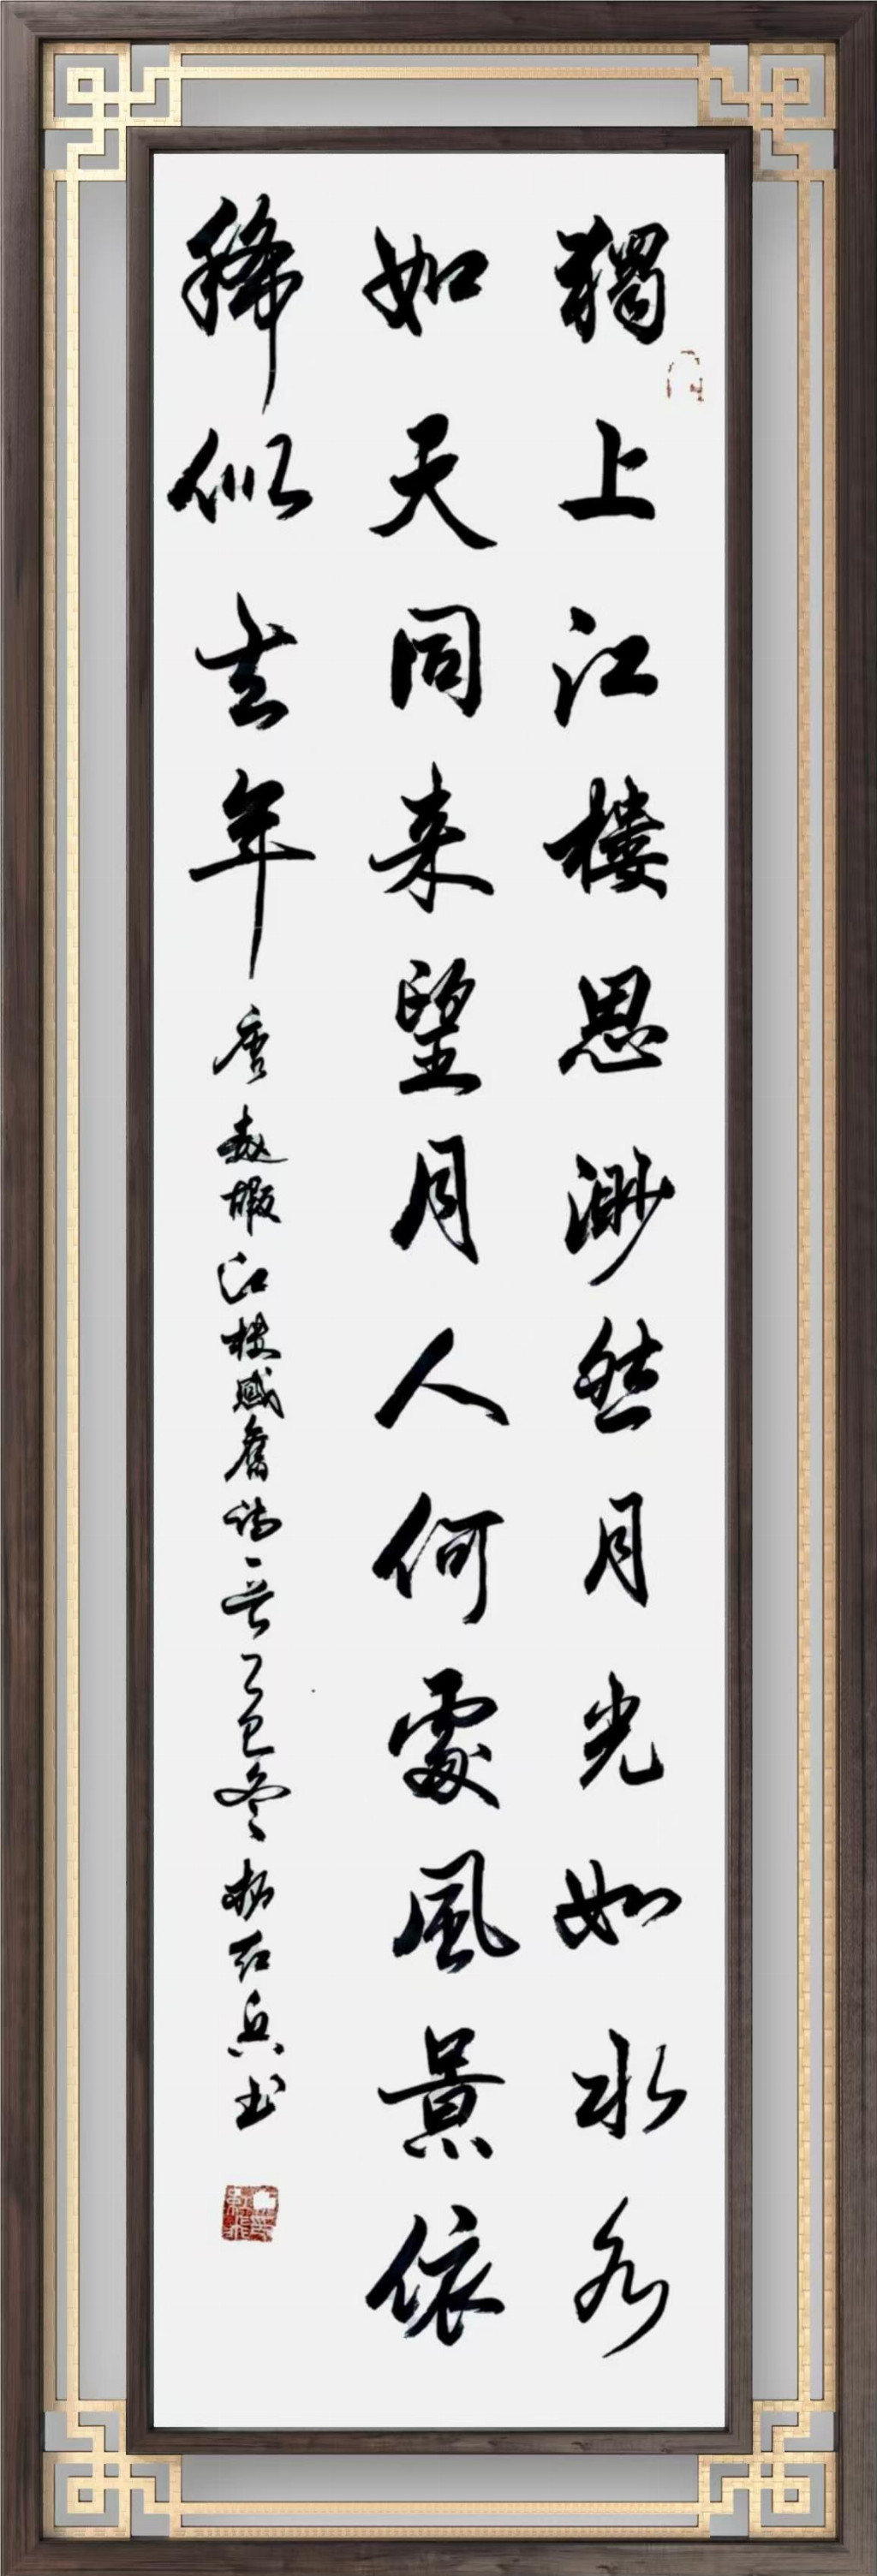 獨上江樓思渺然月光如水水
如天同来望月人何處風景依
稀似去年 唐趙嘏江樓感舊詩一首乙巳冬 红兵书